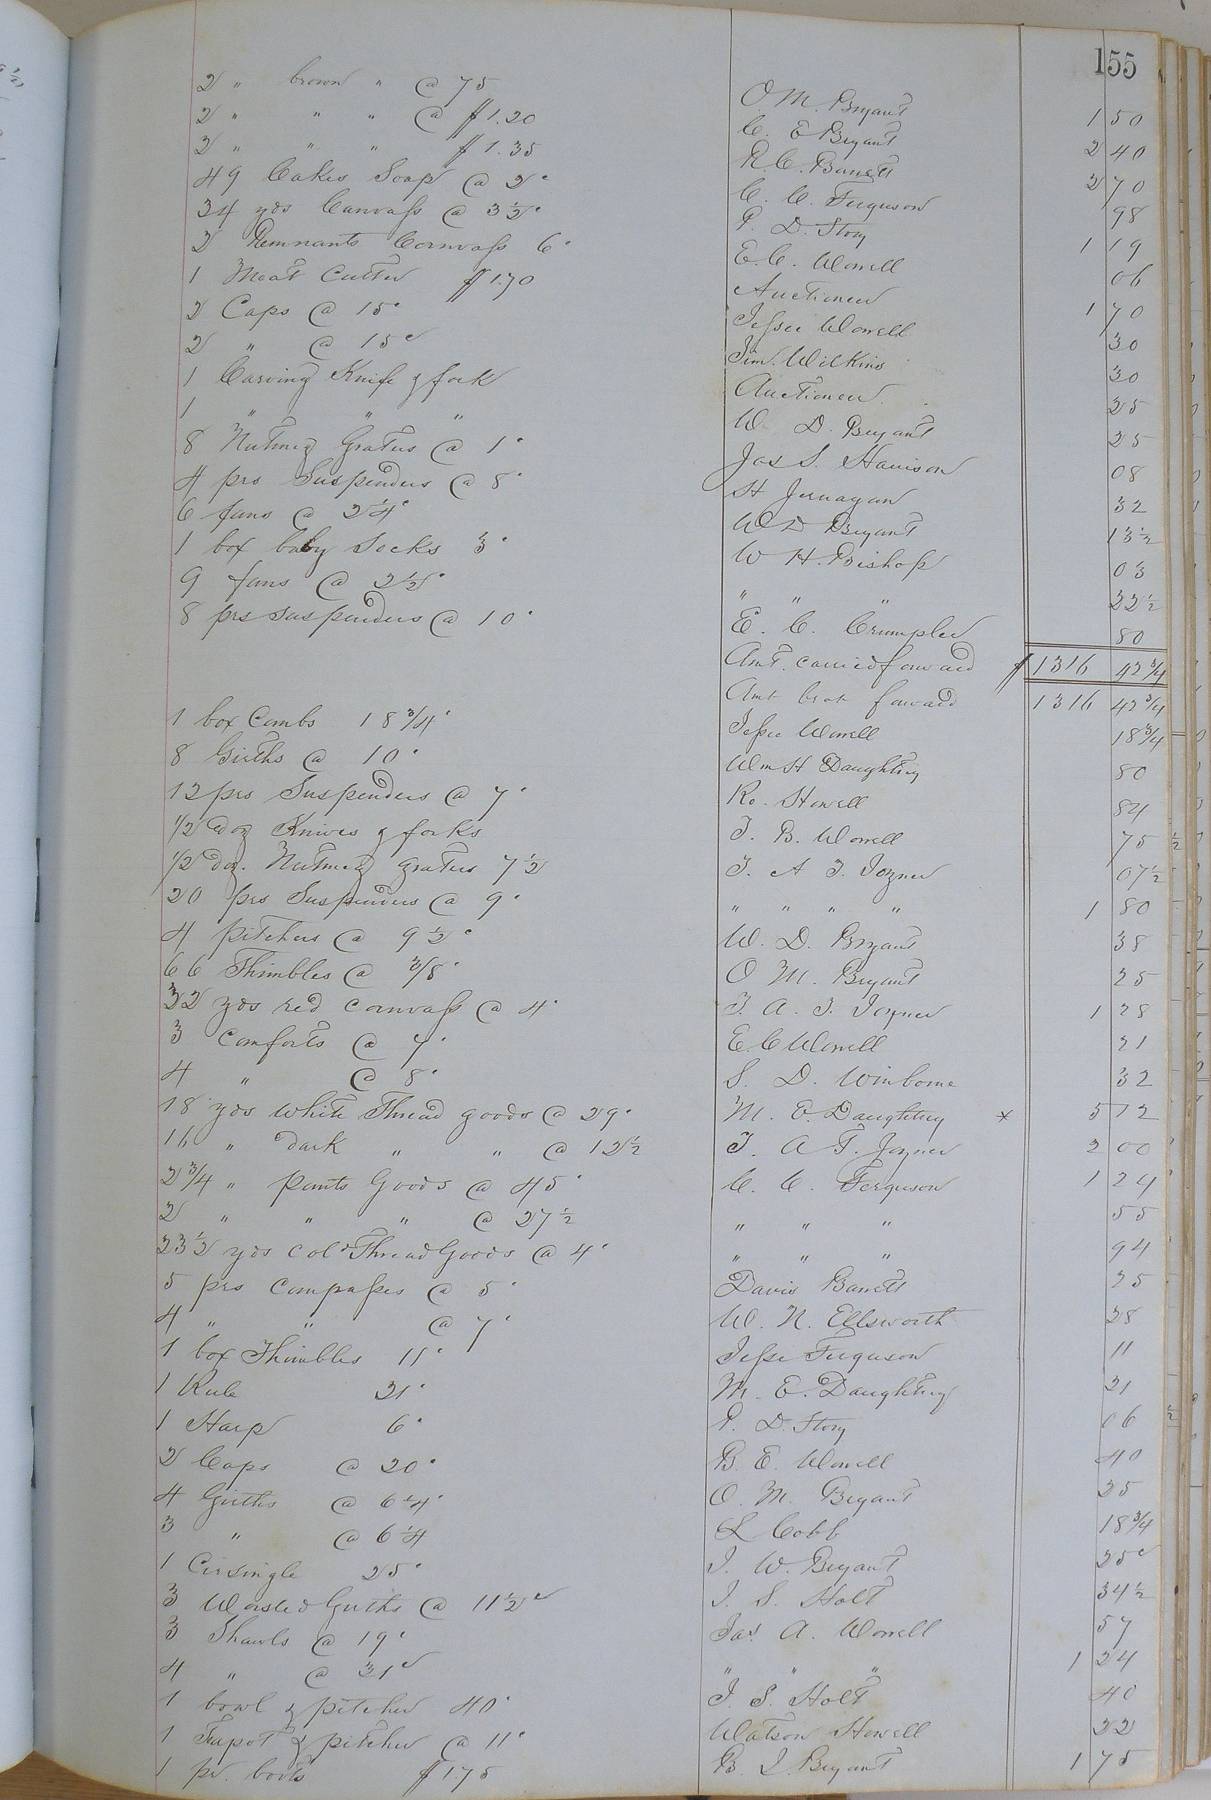 155
2 " brown " @ 75 O. M. Bryant 1 50
2 " " " @ $1.20 C. E Bryant 2 40
2 " " " $1.35 R. C. Barrett 2 70
49 Cakes Soap @ 2c C. C. Ferguson 98
34 yds Canvass @ 3½c P. D. Story 1 19
2 Remnants Canvass 6c E. C. Worrell 06
1 Meat Cutter $1.70 Auctioneer 1 70
2 Caps @ 15c Jessee Worrell 30
2 " @ 15c Jim. Wilkins 30
1 Carving Knife & fork Auctioneer 25
1 " " " W. D. Bryant 25
8 Nutmeg Graters @ 1c Jas S. Harrison 08
4 prs Suspenders @ 8c H Jernagan 32
6 fans @ 2¼c W D Bryant 13½
1 box baby Socks 3c W H. Bishop 03
9 fans @ 2½c " " " 22½
8 prs suspenders @ 10c E. C. Crumpler 80
Amt. carried forward $ 1316 42¾
Amt brot forward 1316 42¾
1 box Combs 18¾c Jessee Worrell 18¾
8 Girths @ 10c Wm H Daughtrey 80
12 prs Suspenders @ 7c Ro. Howell 84
1/2 doz Knives & forks J. B. Worrell 75
1/2 doz. Nutmeg graters 7½ J. A J. Joyner 07½
20 prs Suspenders @ 9c " " " " 1 80
4 pitchers @ 9½c W. D. Bryant 38
66 Thimbles @ 3/8c O M. Bryant 25
32 yds red canvass @ 4c J. A. J. Joyner 1 28
3 Comforts @ 7c E. C Worrell 21
4 " @ 8c S. D. Winborne 32
18 yds White Thread goods @ 29c M. E. Daughtrey × 5 12
16 " dark " " @ 12½ J. A J. Joyner 2 00
2¾ " pants Goods @ 45c C. C. Ferguson 1 24
2 " " " @ 27½ " " " 55
23½ yds cold Thread Goods @ 4c " " " 94
5 prs Compasses @ 5c Davis Barrett 25
4 " " @ 7c W. N. Ellsworth 28
1 box Thimbles 11c Jesse Ferguson 11
1 Rule 21c M. E. Daughtrey 21
1 Harp 6c P. D. Story 06
2 Caps @ 20c B. E. Worrell 40
4 Girths @ 6¼c O. M. Bryant 25
3 " @ 6¼ L Cobb 18¾
1 Cirsingle 25c J. W. Bryant 25c
3 Worsted Girths @ 11½c J. S. Holt 34½
3 Shawls @ 19c Jas. A. Worrell 57
4 " @ 31c " " " 1 24
1 bowl & pitcher 40c J. S. Holt 40
1 Teapot & pitcher @ 11c Watson Howell 22
1 pr. boots $175 B. J. Bryant 1 75